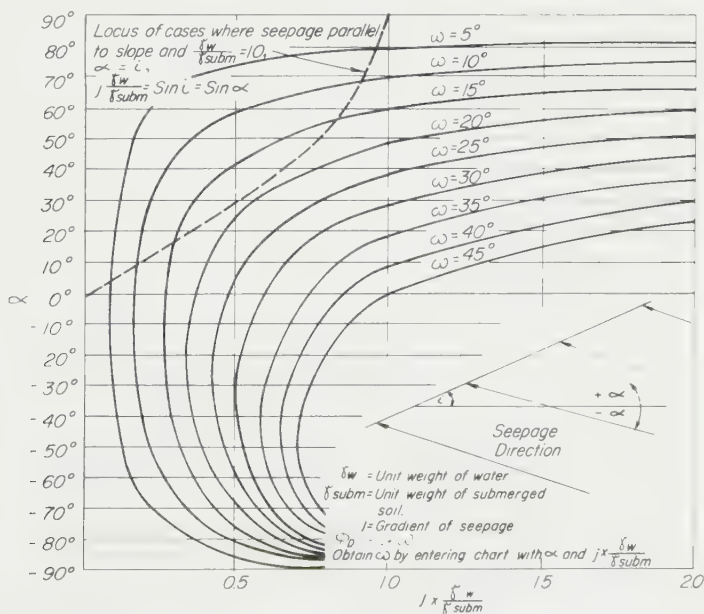 90°
80°
70°
60°
50°
40°
30°
20°
10°
0°
-10°
-20°
-30°
-40°
-50°
-60°
-70°
-80°
-90°
α
Locus of cases where seepage parallel
to slope and γw/γsubm = 1.0,
α = i,
j γw/γsubm = Sin i = Sin α
ω = 5°
ω = 10°
ω = 15°
ω = 20°
ω = 25°
ω = 30°
ω = 35°
ω = 40°
ω = 45°
i
+ α
- α
Seepage
Direction
γw = Unit weight of water
γsubm = Unit weight of submerged
soil.
j = Gradient of seepage
Obtain ω by entering chart with α and j x γw/γsubm
0.5
1.0
1.5
2.0
j x γw/γsubm